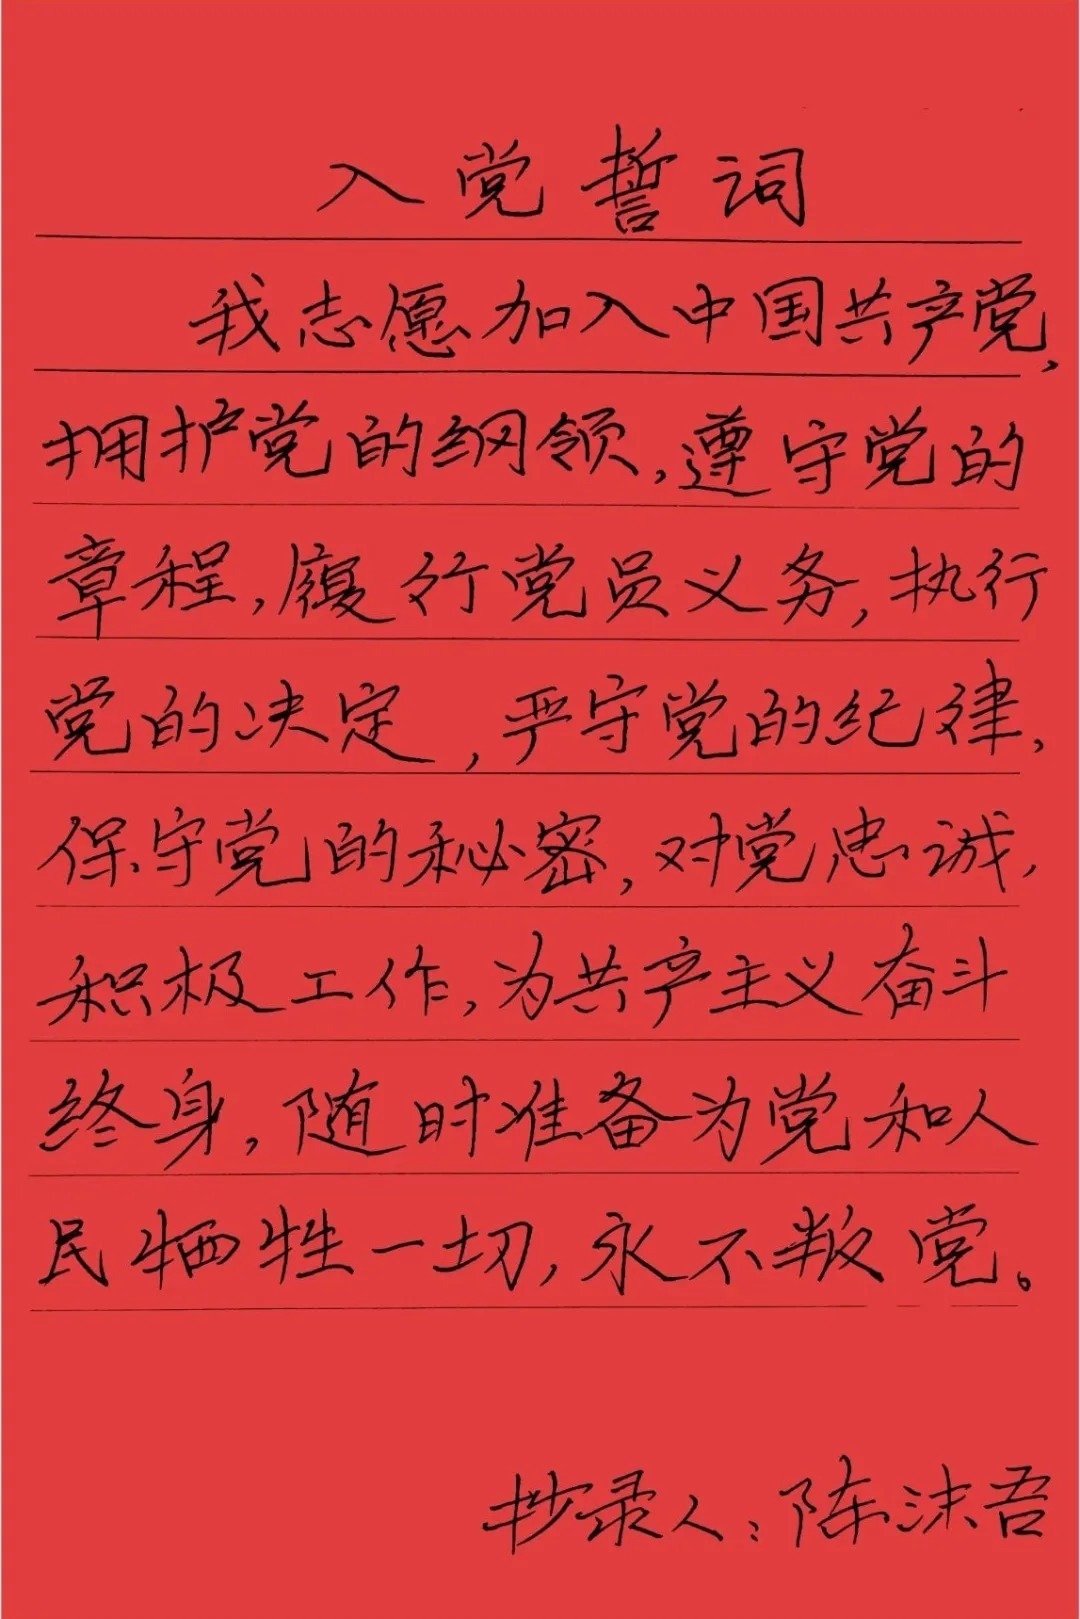 入党誓词
我志愿加入中国共产党,
拥护党的纲领,遵守党的
章程,履行党员义务,执行
党的决定,严守党的纪律,
保守党的秘密,对党忠诚,
积极工作,为共产主义奋斗
终身,随时准备为党和人
民牺牲一切,永不叛党。
抄录人:陈沫吾